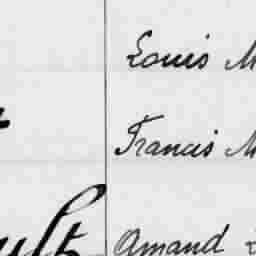 Louis M
Francis M
ult
Amand